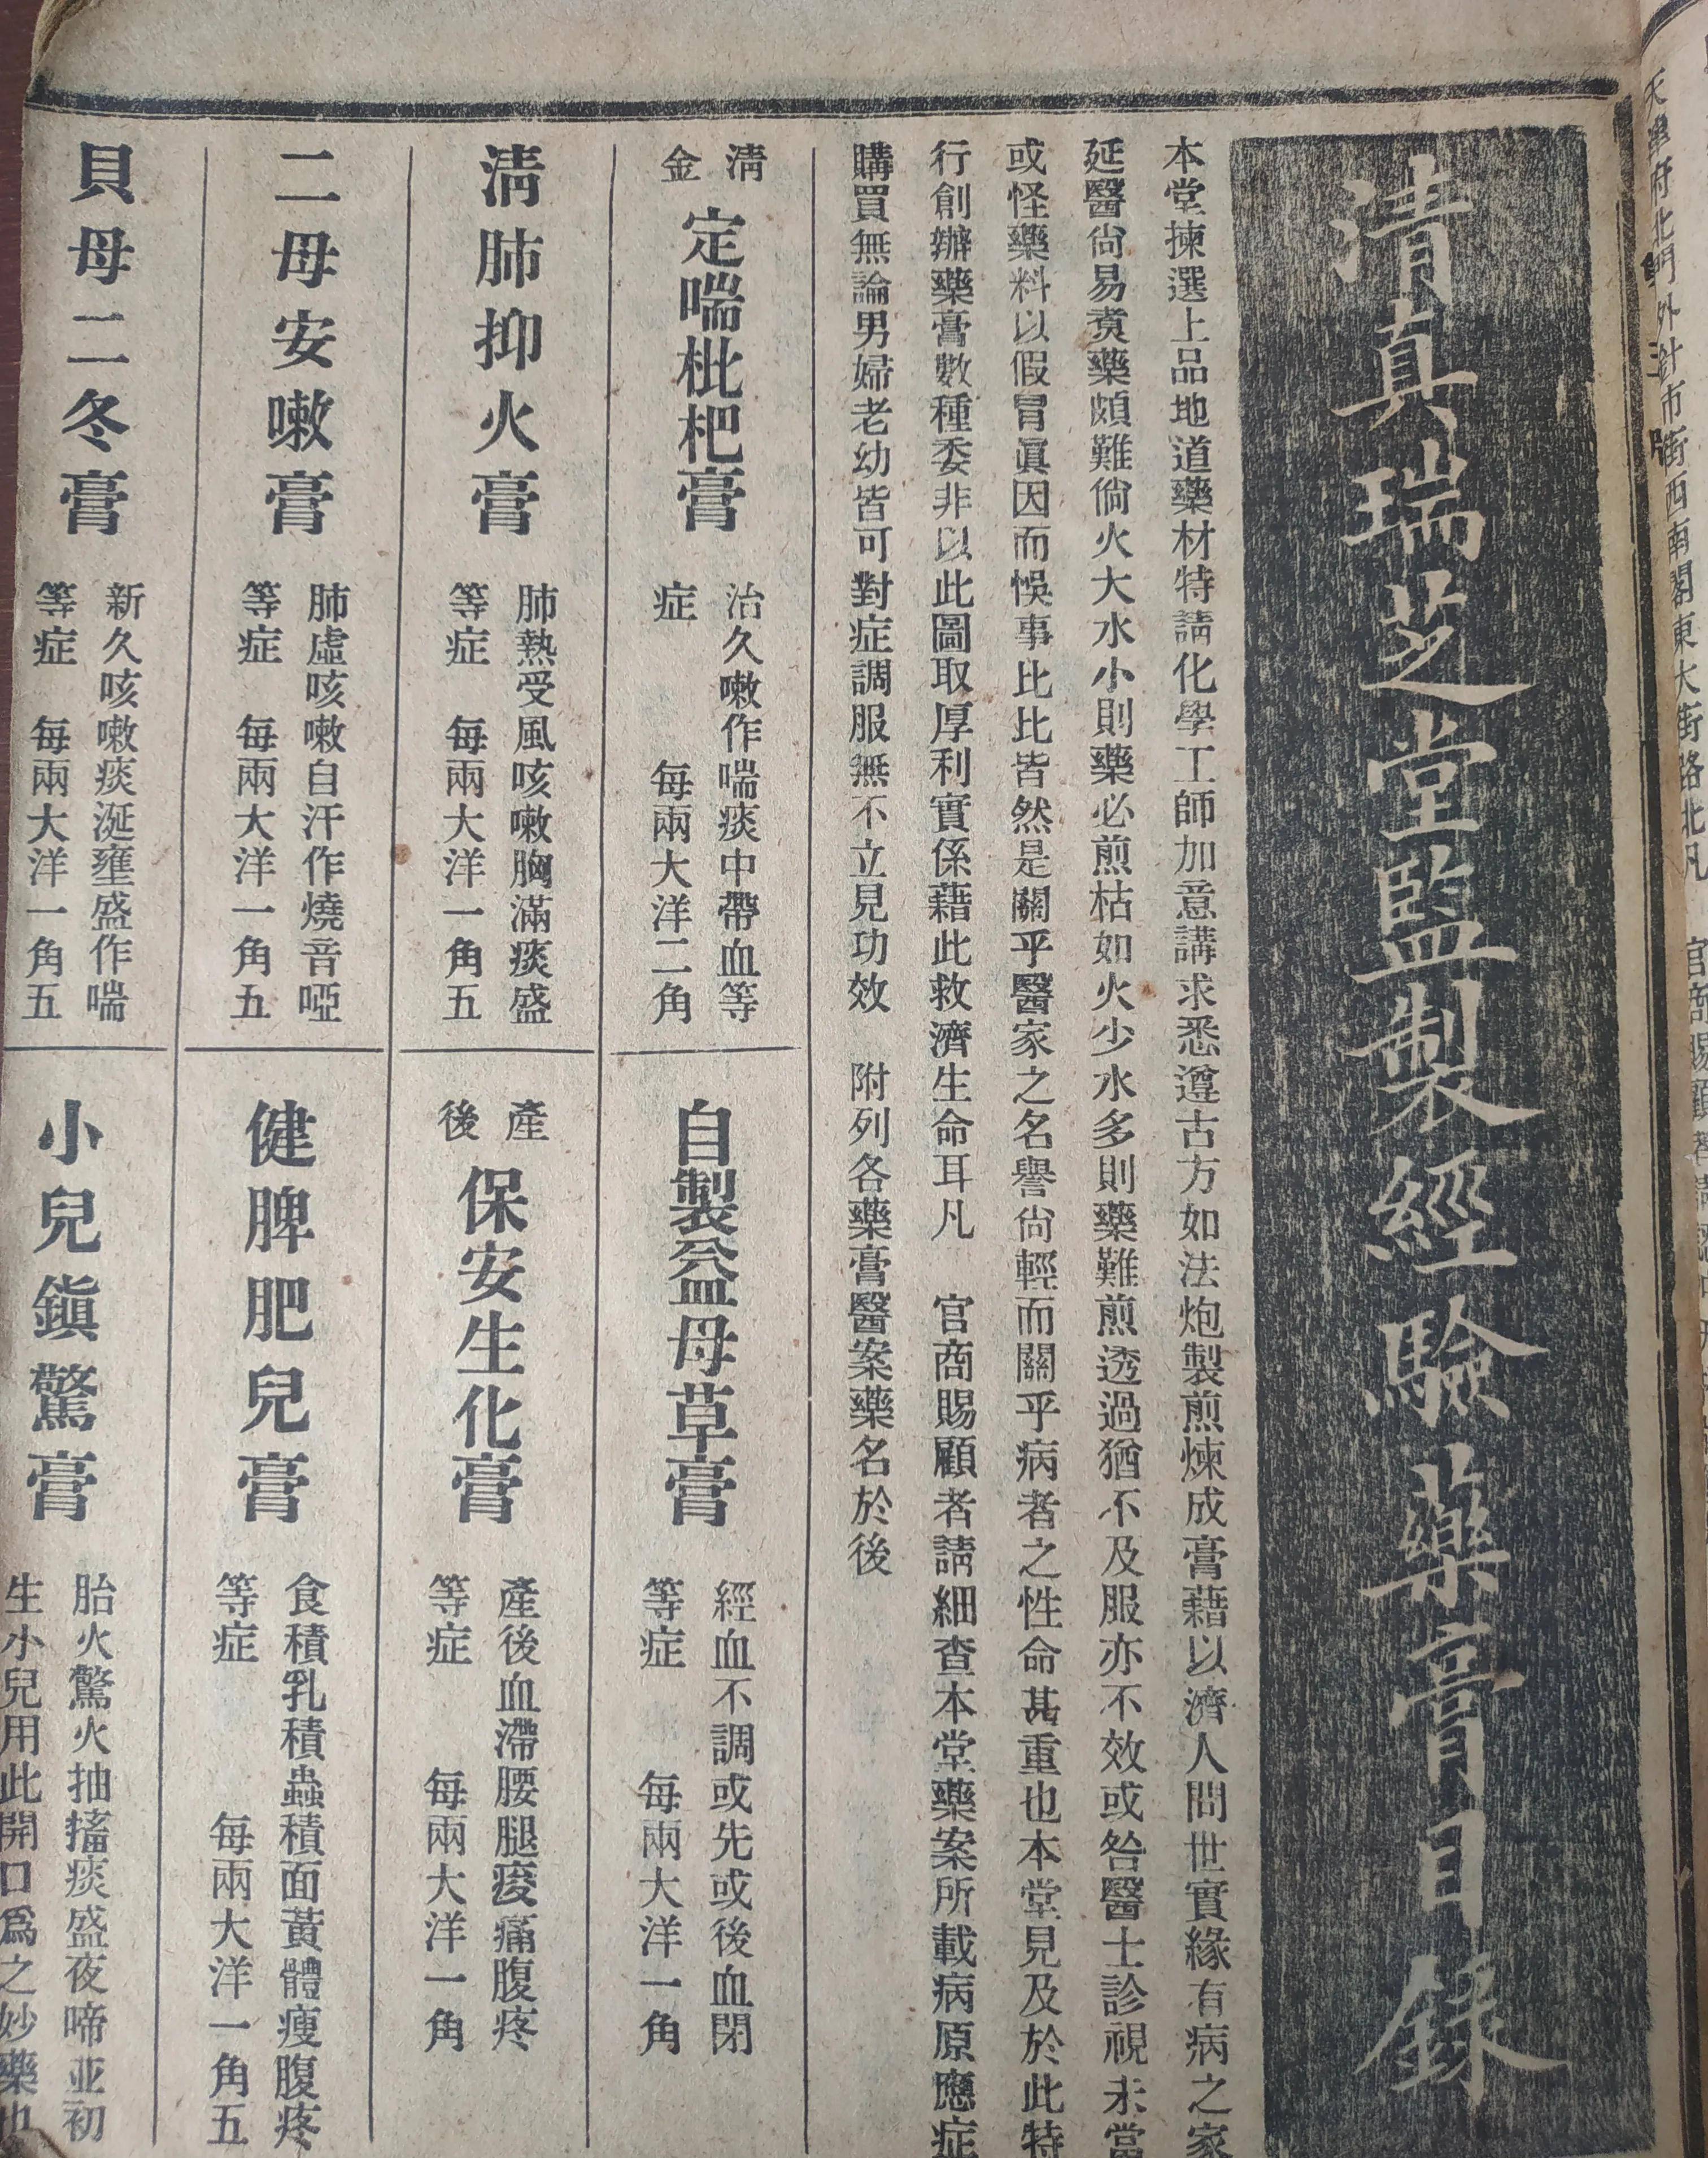 清真瑞芝堂監製經驗藥膏目錄
本堂揀選上品地道藥材特請化學工師加意講求悉遵古方如法炮製煎煉成膏藉以濟人問世實緣有病之家
延醫尙易煑藥頗難倘火大水小則藥必煎枯如火少水多則藥難煎透過猶不及服亦不效或咎醫士診視未當
或怪藥料以假冒眞因而悞事比比皆然是關乎醫家之名譽尙輕而關乎病者之性命甚重也本堂見及於此特
行創辦藥膏數種委非以此圖取厚利實係藉此救濟生命耳凡　官商賜顧者請細查本堂藥案所載病原應症
購買無論男婦老幼皆可對症調服無不立見功效　附列各藥膏醫案藥名於後
清金定喘枇杷膏
治久嗽作喘痰中帶血等
症　每兩大洋二角
自製益母草膏
經血不調或先或後血閉
等症　每兩大洋一角
淸肺抑火膏
肺熱受風咳嗽胸滿痰盛
等症　每兩大洋一角五
產後保安生化膏
產後血滯腰腿痠痛腹疼
等症　每兩大洋一角
二母安嗽膏
肺虛咳嗽自汗作燒音啞
等症　每兩大洋一角五
健脾肥兒膏
食積乳積蟲積面黃體瘦腹疼
等症　每兩大洋一角五
貝母二冬膏
新久咳嗽痰涎壅盛作喘
等症　每兩大洋一角五
小兒鎭驚膏
胎火驚火抽搐痰盛夜啼並初
生小兒用此開口爲之妙藥也
天津府北門外針市街西南閣東大街路北凡